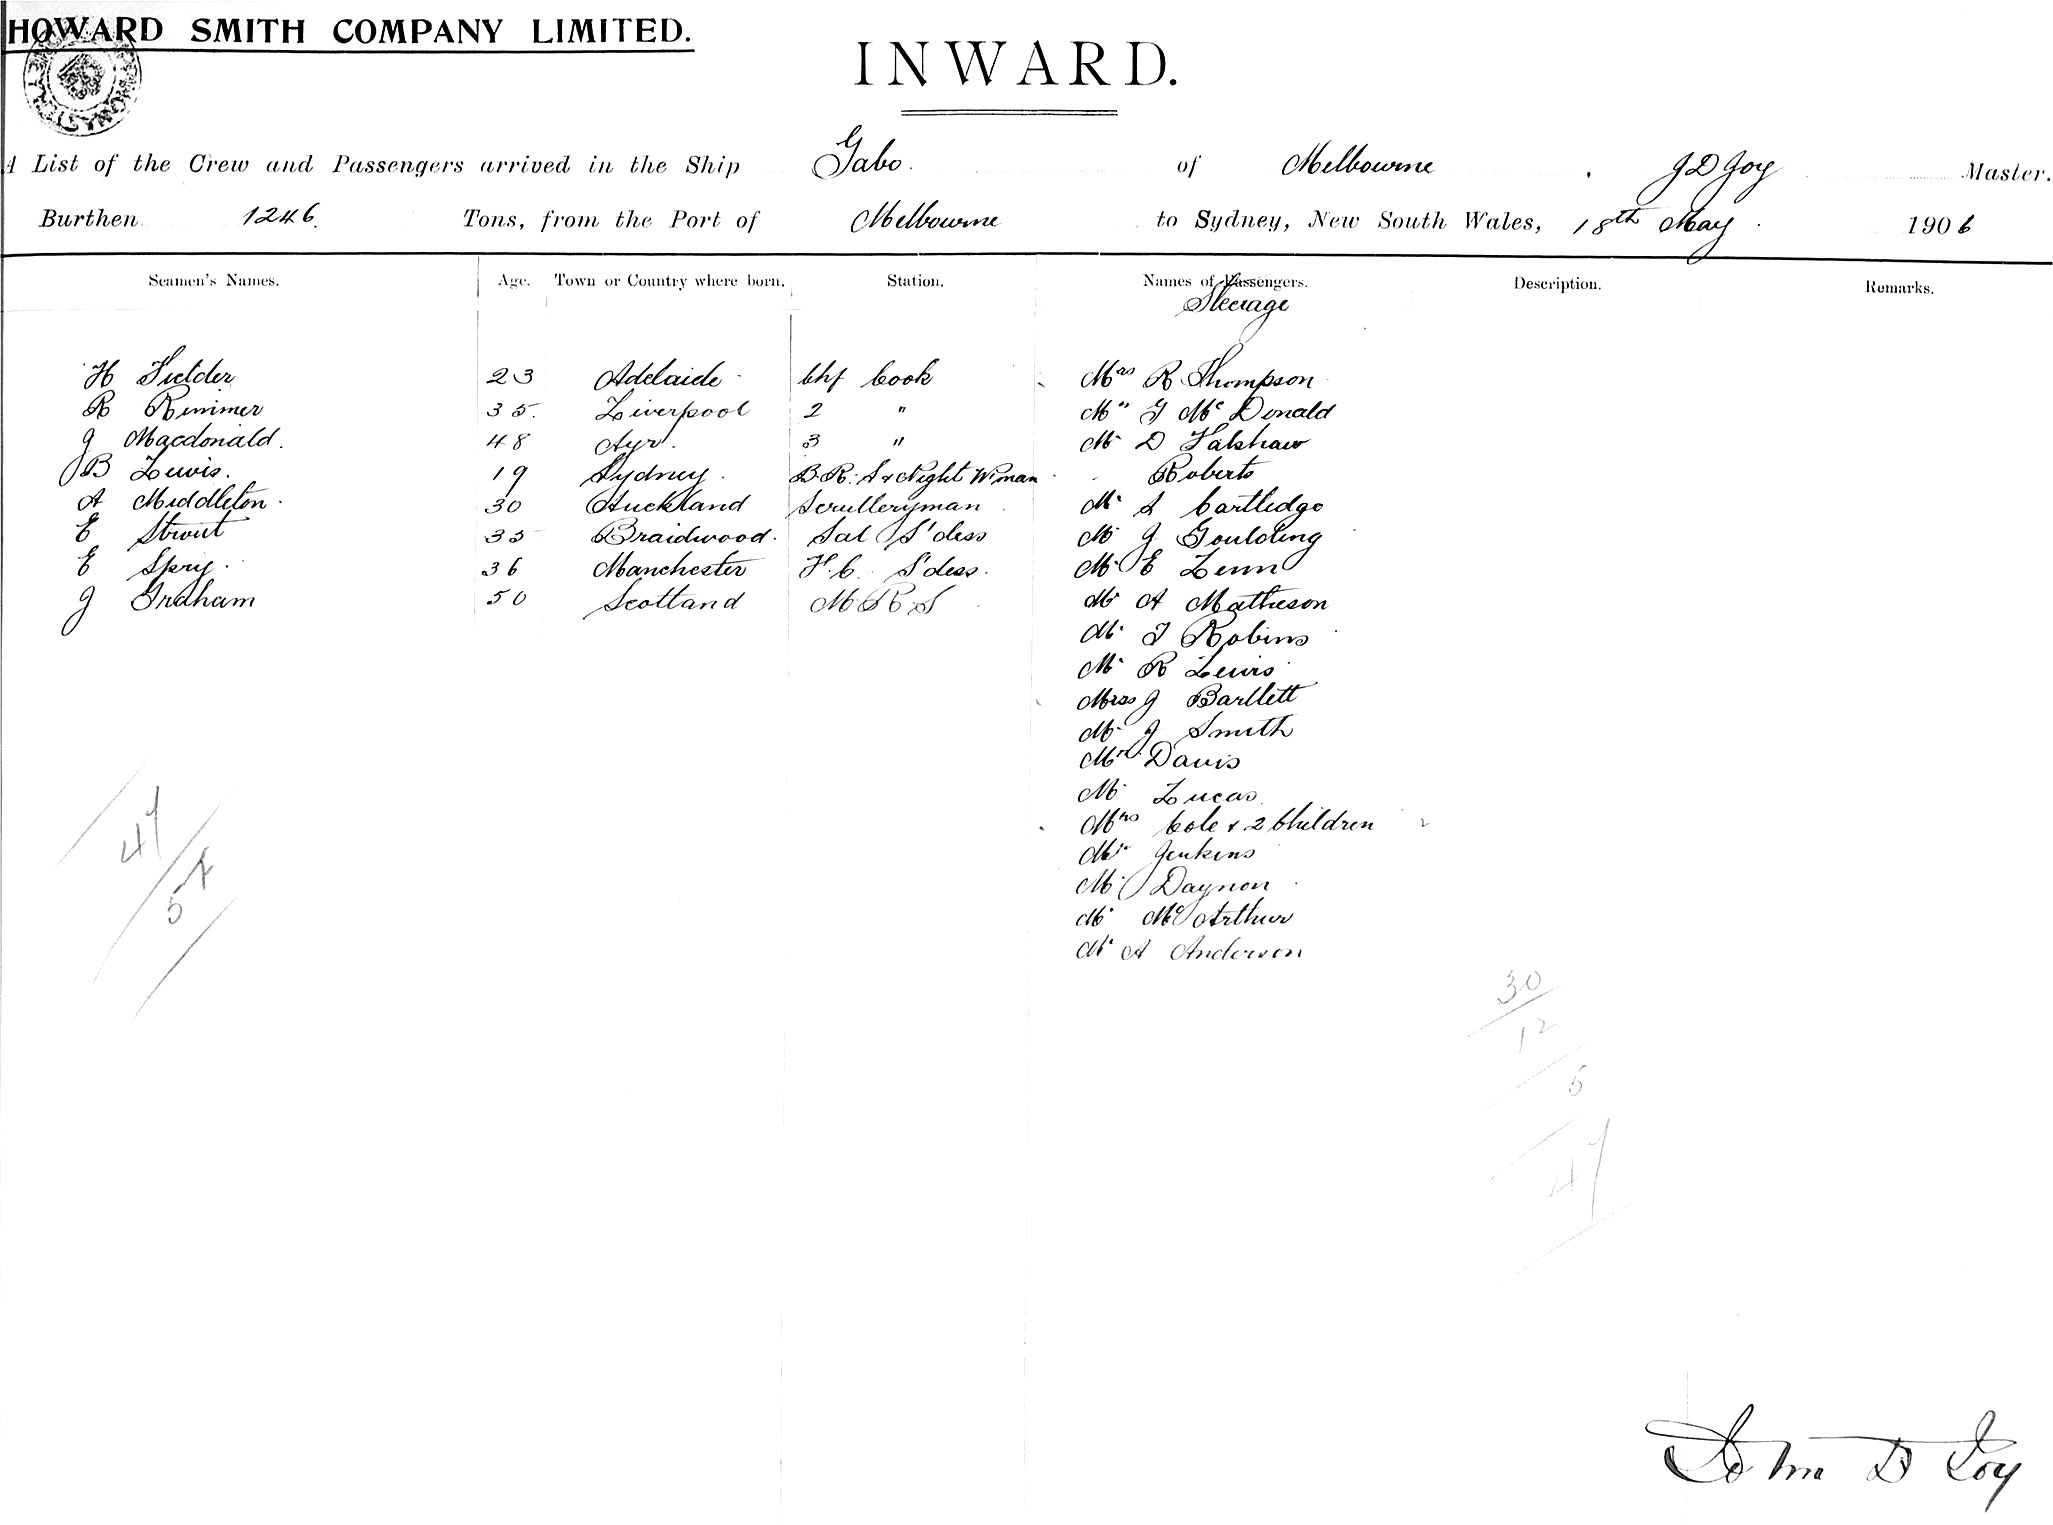 HOWARD SMITH COMPANY LIMITED.
INWARD.
A List of the Crew and Passengers arrived in the Ship Gabo. of Melbourne J D Joy Master.
Burthen 1246. Tons, from the Port of Melbourne to Sydney, New South Wales, 18th May 1906
Seamen's Names. Age. Town or Country where born. Station. Names of Passengers. Description. Remarks.
Steerage
H Fielder 23 Adelaide Chf Cook Mrs R Thompson
R Rimmer 35. Liverpool 2 " Mr J McDonald
J Macdonald. 48 Ayr. 3 " Mr D Falshaw
B Lewis. 19 Sydney. B.R. S & Night W.man Roberts
A Middleton. 30 Auckland Scrulleryman Mr S Cartledge
E Strout 35 Braidwood. Sal S'dess Mr J Goulding
E Spry. 36 Manchester F.C. S'dess. Mr E Lenn
J Graham 50 Scotland M R S Mr A Matheson
Mr T Robins
Mr R Lewis
Miss J Bartlett
Mr J Smith
Mr Davis
Mr Lucas.
Mrs Cole & 2 Children
Mr Jenkins
Mr Daynon
Mr McArthur
Mr A Anderson
47
30
12
5
47
John D Joy